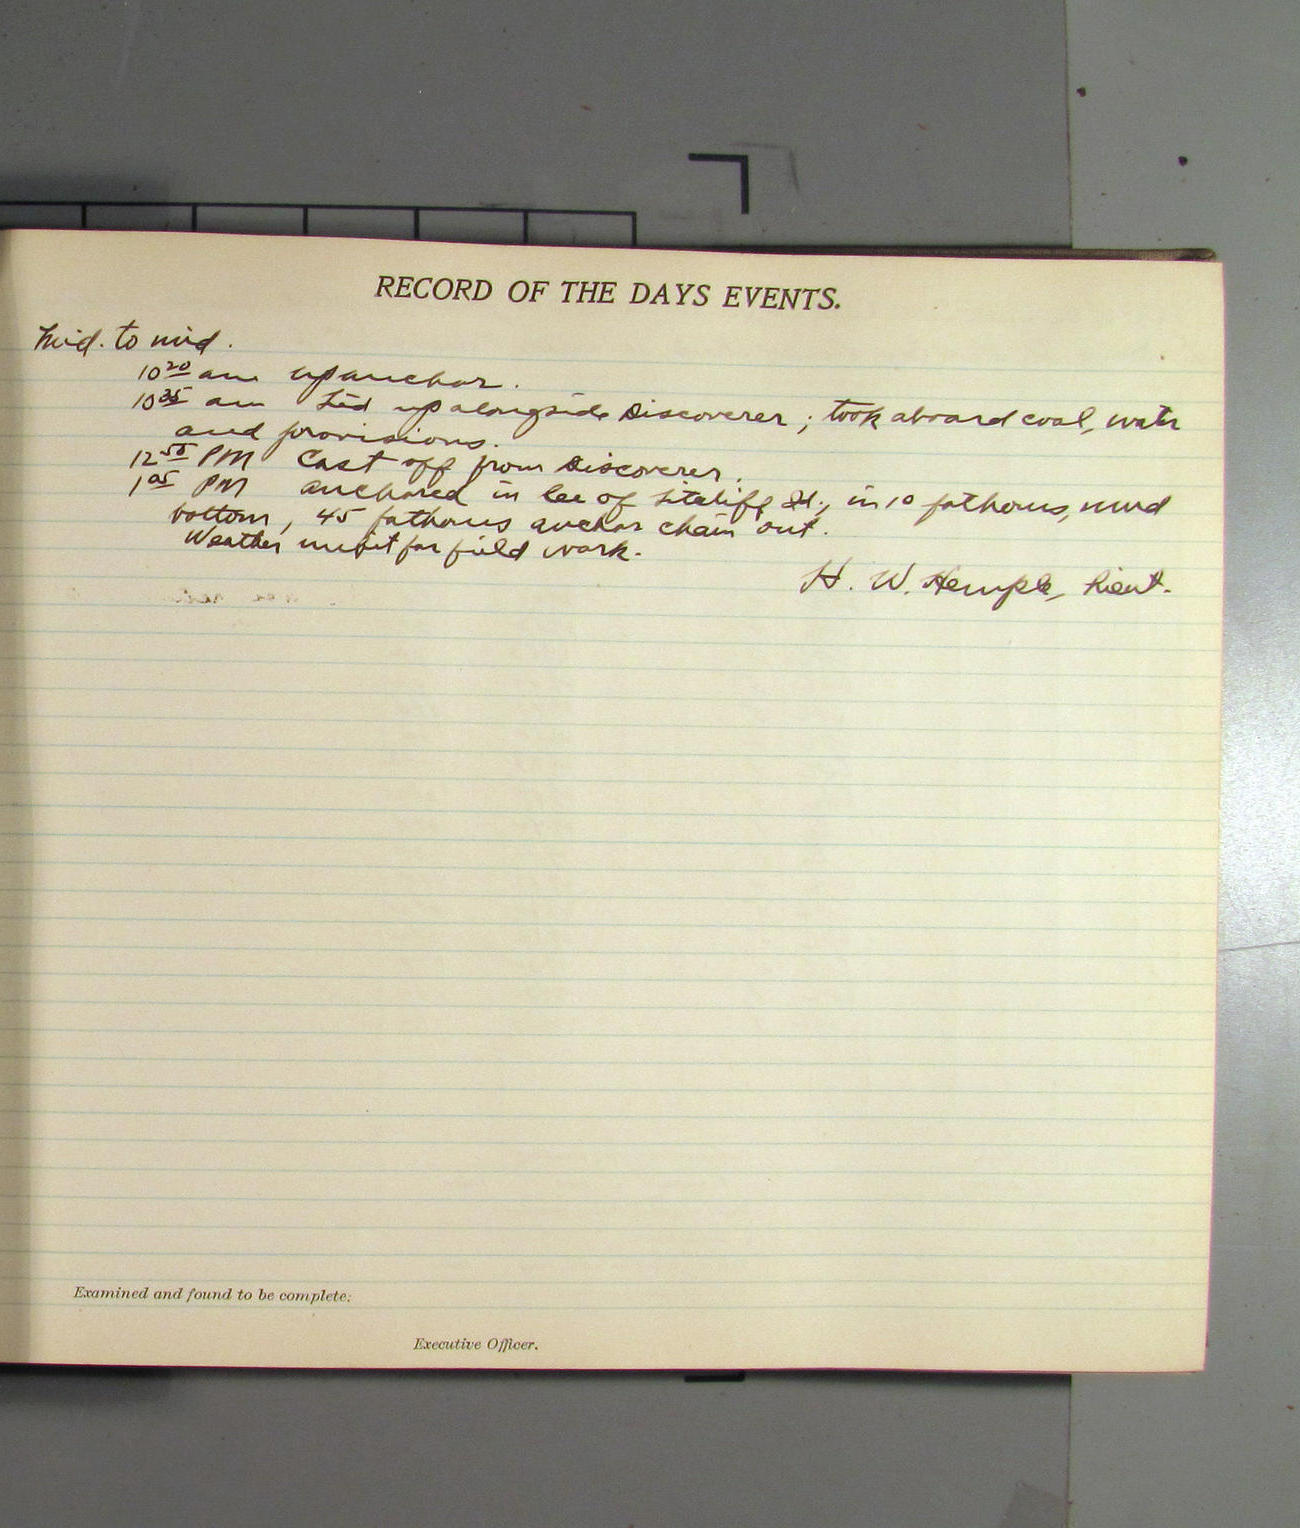 RECORD OF THE DAYS EVENTS.
Mid. to mid.
10 20 am up anchor.
10 35 am Tied up alongside Discoverer; took aboard coal, water
and provisions.
12 55 PM Cast off from Discoverer.
1 05 PM anchored in lee of Sitklif Id., in 10 fathoms, mud
bottom, 45 fathoms anchor chain out.
Weather unfit for field work.
H. W. Hemple, Lieut.
Examined and found to be complete:
Executive Officer.